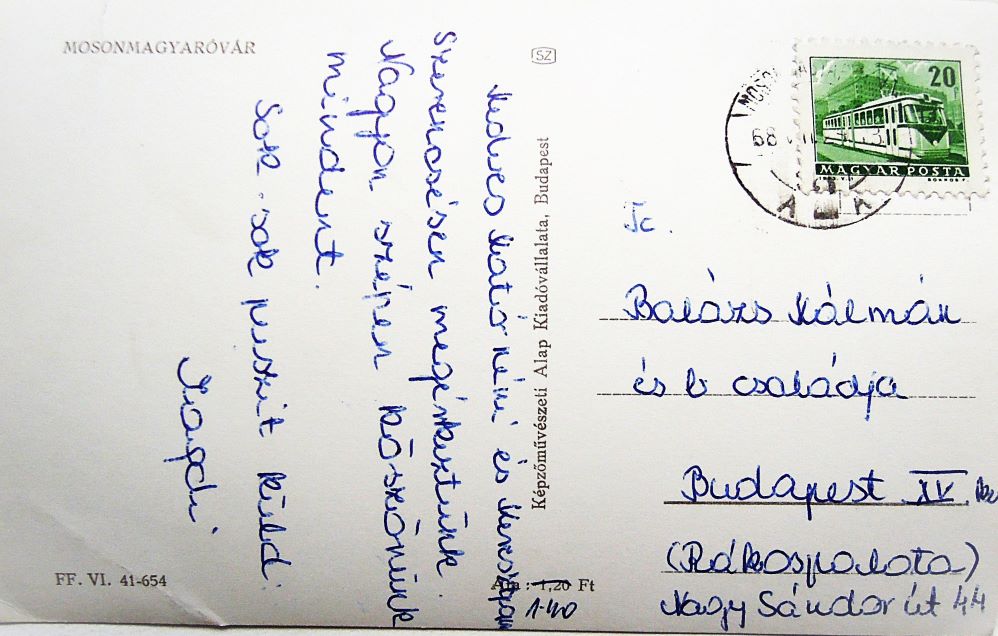 MOSONMAGYARÓVÁR
Kedves
és
Szerencsésen megérkeztünk.
Nagyon szépen köszönünk
mindent.
Sok-sok puszit küld:
Magdi
SZ
Képzőművészeti Alap Kiadóvállalata, Budapest
FF. VI. 41-654
Ára: 1,20 Ft
1.40
20
MAGYAR POSTA
68
Balázs Kálmán
és b családja
Budapest XV.
(Rákospalota)
Nagy Sándor út 44